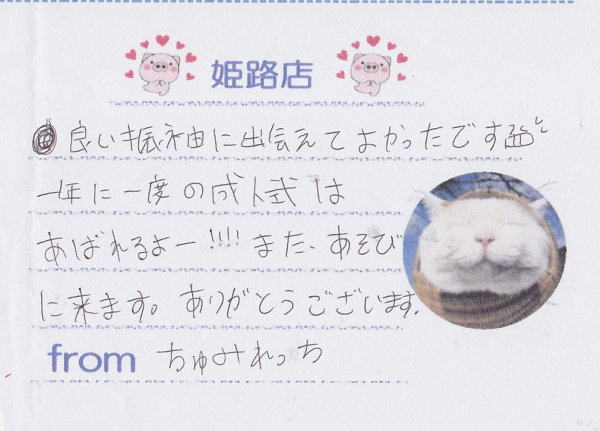 姫路店
良い振袖に出会えてよかったです
一年に一度の成人式は
あばれるよー!!!! また、あそび
に来ます。ありがとうございます。
from ちゅみれっち